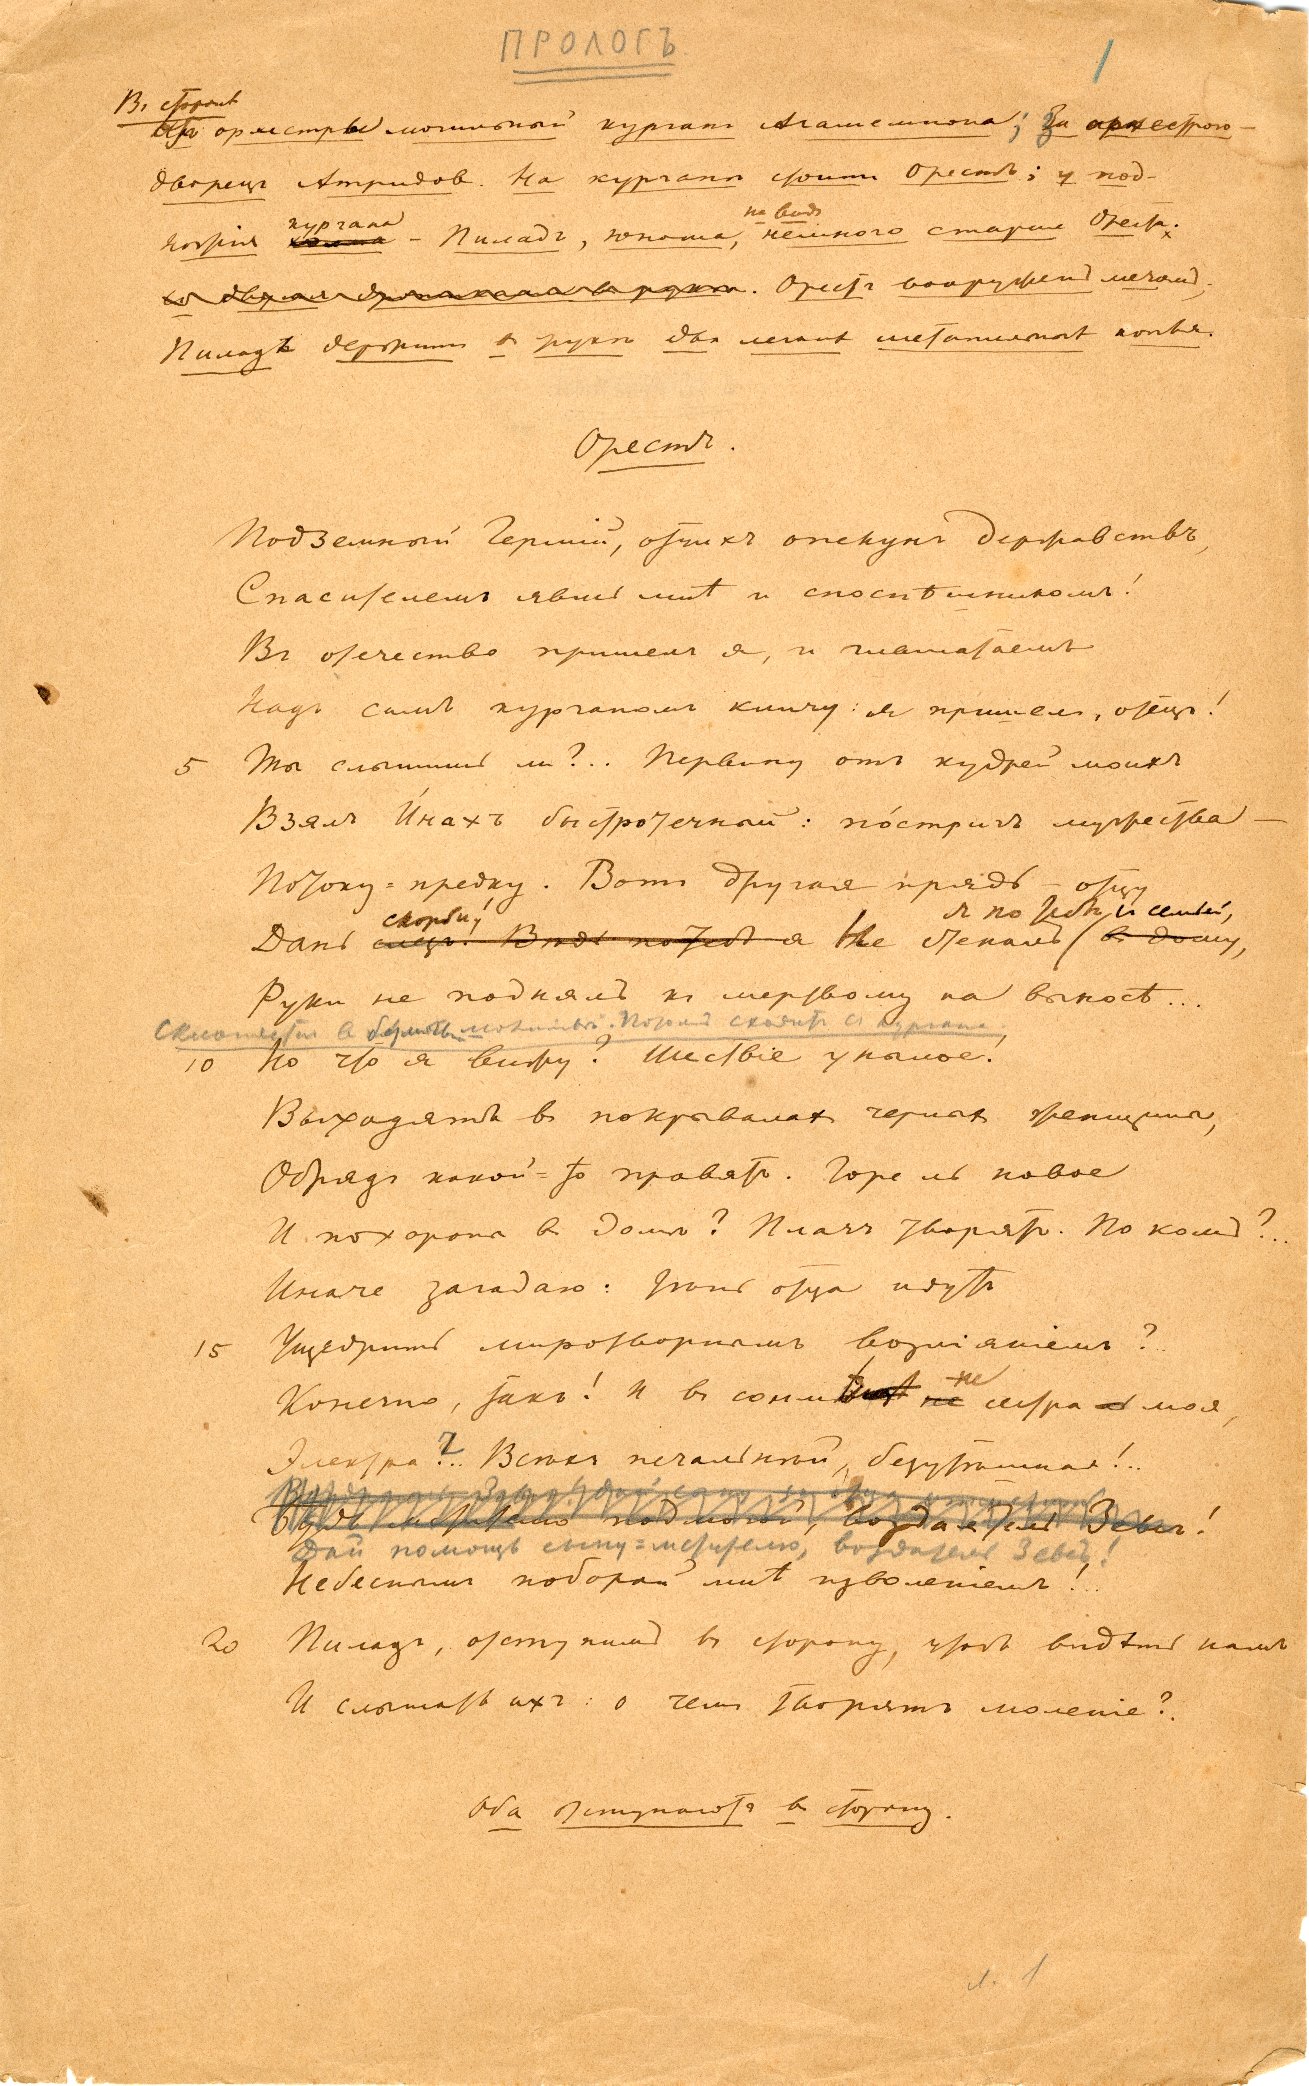 ПРОЛОГЪ
1
Въ
орхестры могильный курганъ Агамемнона; За орхестрою —
дворецъ Атридовъ. На курганѣ стоитъ Орестъ; у под-
ножія кургана — Пиладъ, юноша, на видъ немного старше Ореста.
Орестъ вооруженъ мечомъ;
Пиладъ держитъ въ рукѣ два легкихъ метательныхъ копья.
Орестъ.
Подземный Гермій, отчихъ опекунъ державствъ,
Спасителемъ явись мнѣ и споспѣшникомъ!
Въ отечество пришелъ я, и глашатаемъ
Надъ симъ курганомъ кличу: я пришелъ, отецъ!
5 Ты слышишь ли?.. Первину отъ кудрей моихъ
Взялъ И́нахъ быстротечный: по́стригъ мужества —
Потоку-предку. Вотъ другая прядь — отцу
скорби! я по тебѣ, и семьи,
Дань я Не стеналъ въ дому,
Руки не поднялъ къ мертвому на выносѣ...
Потомъ сходитъ съ кургана
10 Но что я вижу? Шествіе унылое!
Выходятъ въ покрывалахъ черныхъ женщины,
Обрядъ какой-то правятъ. Горе ль новое
И похороны въ домѣ? Плачъ творятъ. По комъ?..
Иначе загадаю: тѣнь отца идутъ
15 Ущедрить миротворнымъ возліяніемъ?..
Конечно, такъ! И въ сонмѣ не не сестра ль моя,
Электра?.. Всѣхъ печальнѣй, безутѣшная!..
Будь подмогой, воздаятель Зевсъ!
Дай помощь сыну-мстителю, воздатель Зевсъ!
Небеснымъ поборай мнѣ изволеніемъ!..
20 Пиладъ, отступимъ въ сторону, чтобъ видѣть намъ
И слышать ихъ: о чемъ творятъ моленіе?.
Оба отступаютъ въ сторону.
л. 1